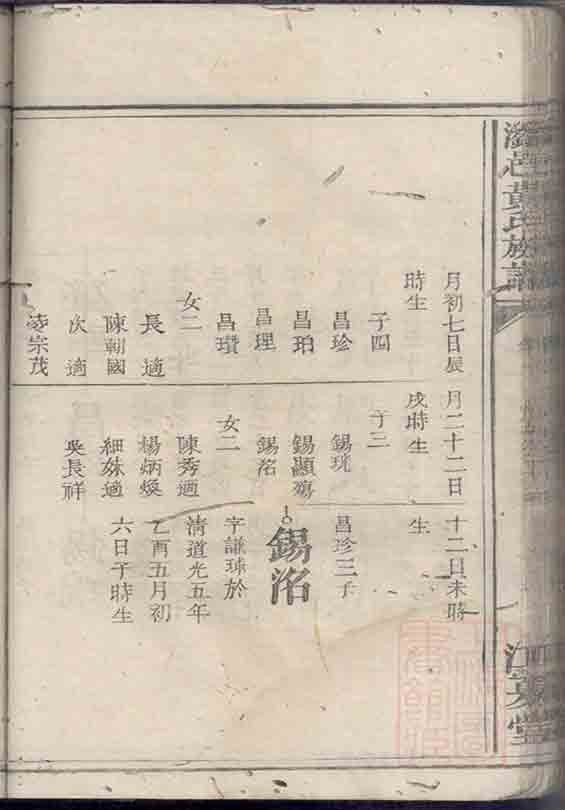 黃氏族譜
江夏堂
月初七日辰
時生
子四
昌珍
昌珀
昌理
昌瓚
女二
長適
陳朝國
次適
凌宗茂
月二十二日
戌時生
子三
錫珖
錫顯殤
錫洺
女二
陳秀適
楊炳煥
細妹適
吳長祥
十二日未時
生
昌珍三子
錫洺
字謙球於
清道光五年
乙酉五月初
六日子時生